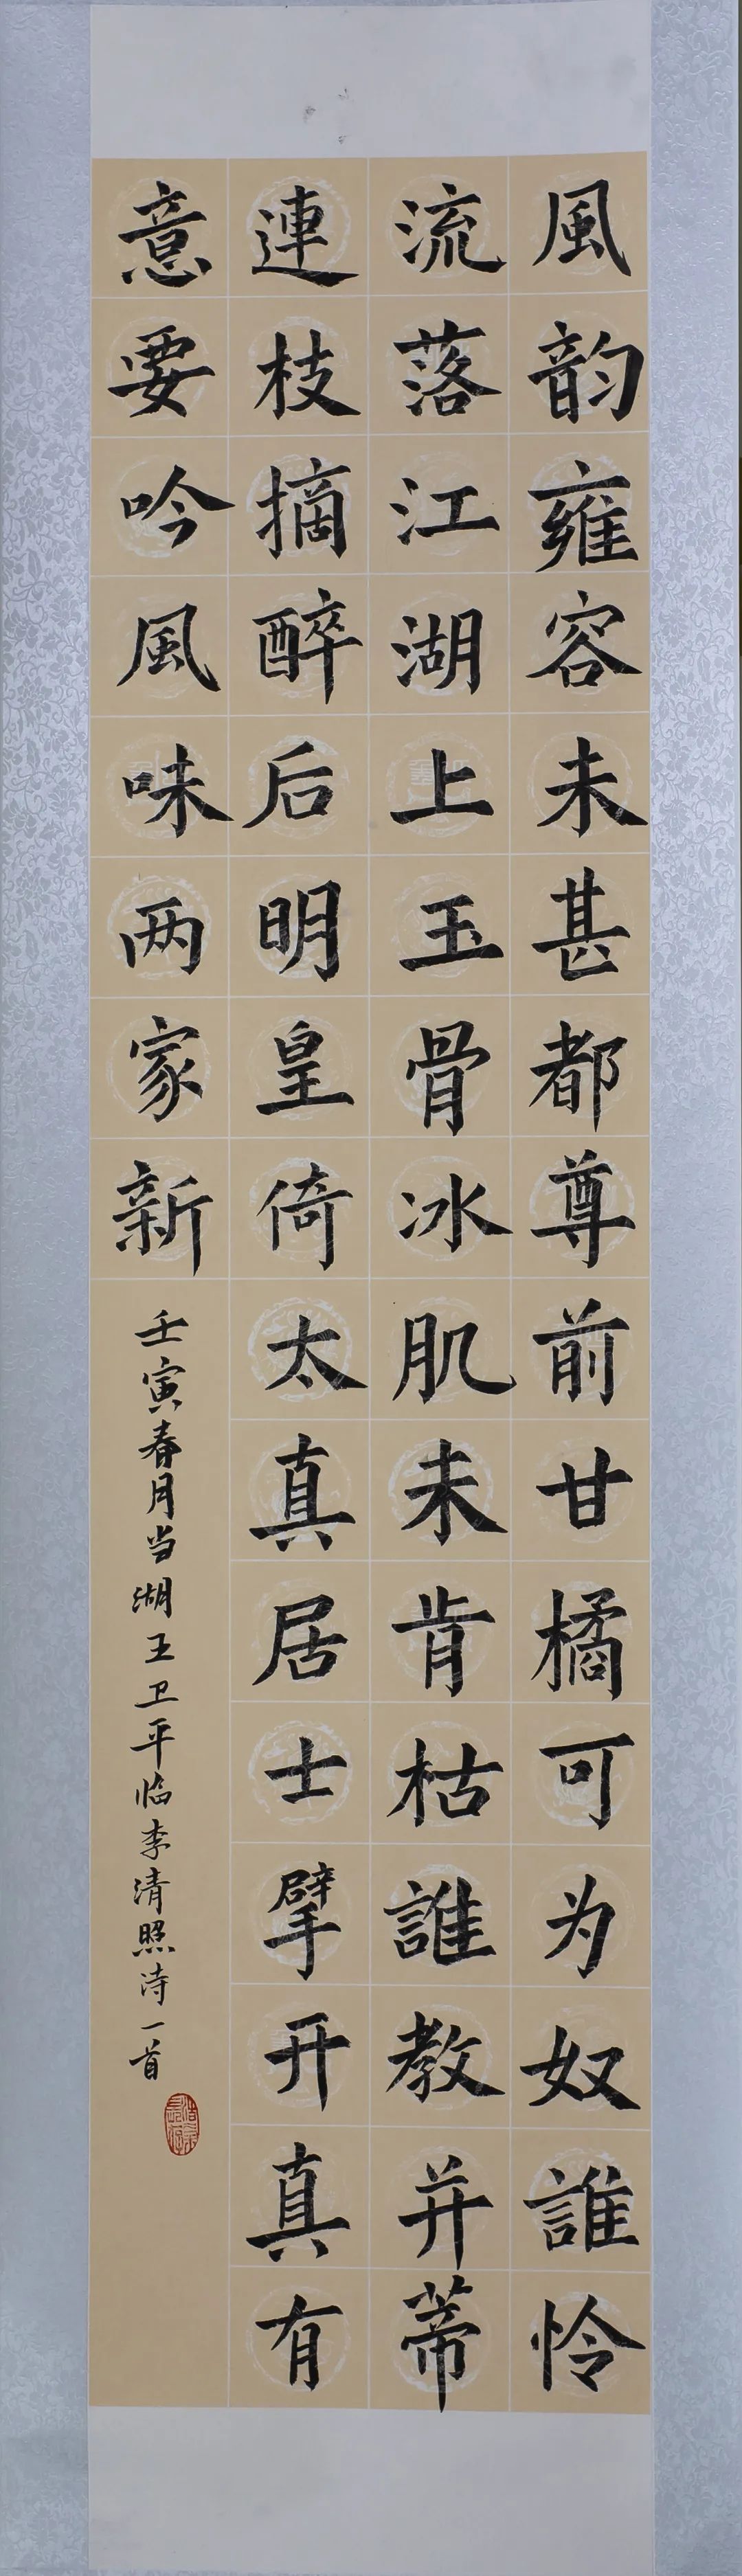 風韵雍容未甚都尊前甘橘可为奴誰怜
流落江湖上玉骨冰肌未肯枯誰教并蒂
連枝摘醉后明皇倚太真居士擘开真有
意要吟風味两家新
壬寅春月当湖王卫平临李清照诗一首